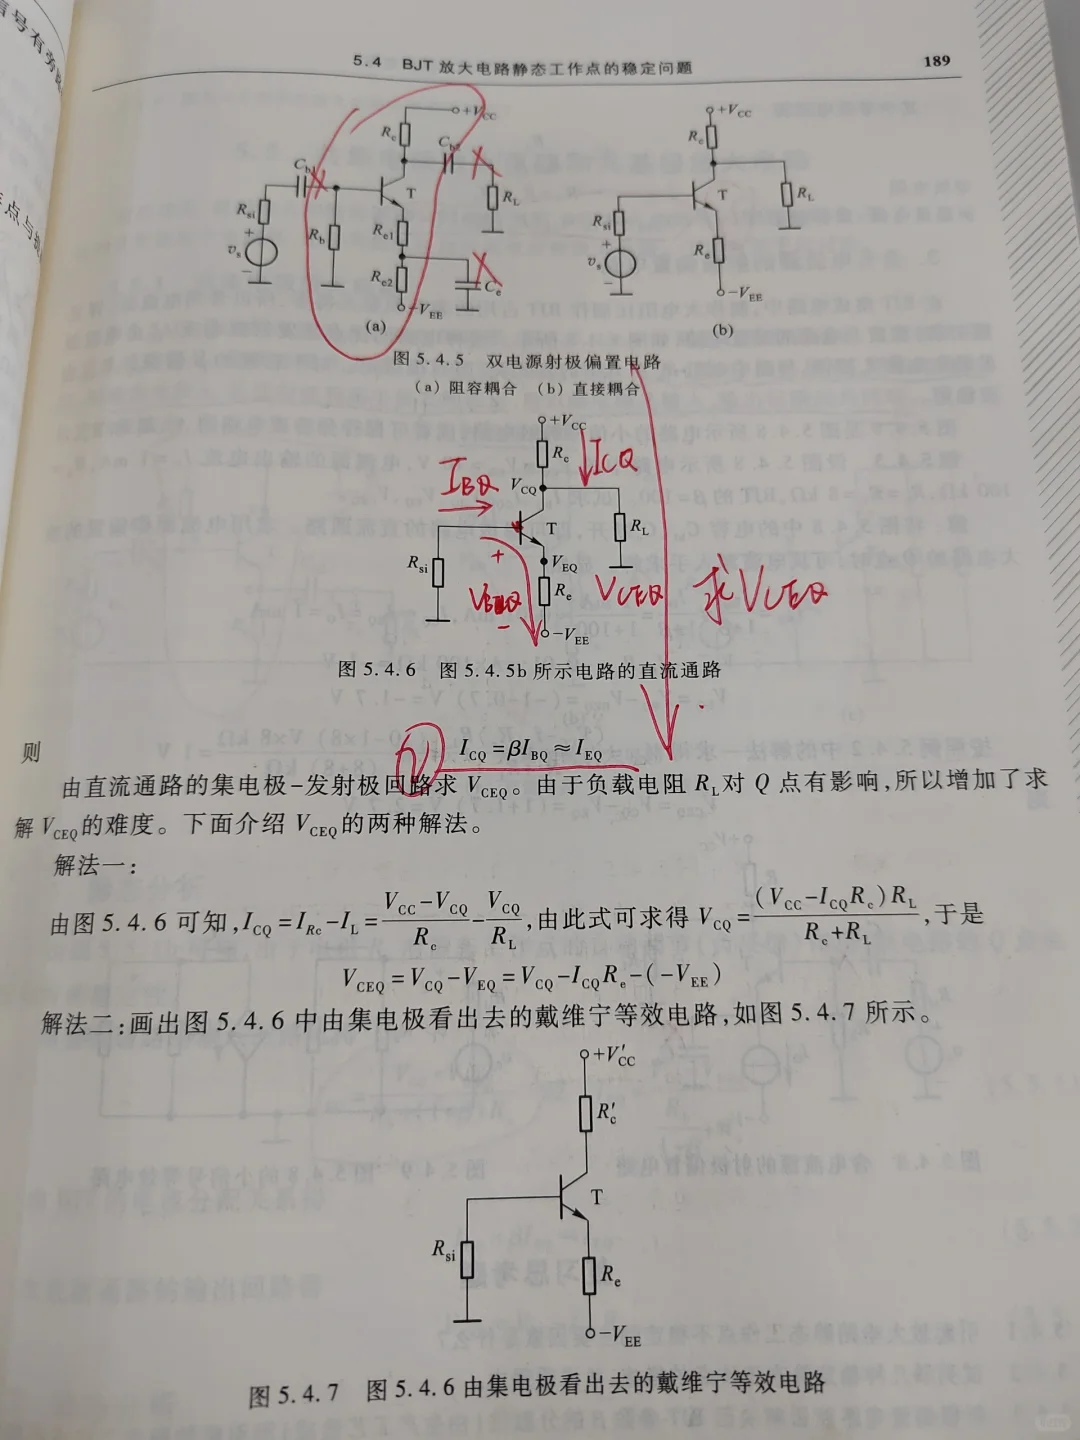 5.4 BJT 放大电路静态工作点的稳定问题 189
+VCC
Rc
Cb1
Cb2
T
Rsi
vs
+
-
Rb
Re1
Re2
RL
Ce
-VEE
(a)
+VCC
Rc
T
RL
Rsi
vs
+
-
Re
-VEE
(b)
图 5.4.5 双电源射极偏置电路
(a) 阻容耦合 (b) 直接耦合
+VCC
Rc
ICQ
IBQ
VCQ
T
RL
Rsi
+
VBEQ
-
VEQ
Re
VCEQ
求VCEQ
-VEE
图 5.4.6 图 5.4.5b 所示电路的直流通路
则
ICQ=βIBQ≈IEQ
由直流通路的集电极-发射极回路求 VCEQ。由于负载电阻 RL对 Q 点有影响,所以增加了求
解 VCEQ的难度。下面介绍 VCEQ的两种解法。
解法一:
由图 5.4.6 可知,ICQ=IRc-IL=(VCC-VCQ)/Rc-VCQ/RL,由此式可求得 VCQ=(VCC-ICQRc)RL/(Rc+RL),于是
VCEQ=VCQ-VEQ=VCQ-ICQRe-(-VEE)
解法二:画出图 5.4.6 中由集电极看出去的戴维宁等效电路,如图 5.4.7 所示。
+V′CC
R′c
T
Rsi
Re
-VEE
图 5.4.7 图 5.4.6 由集电极看出去的戴维宁等效电路